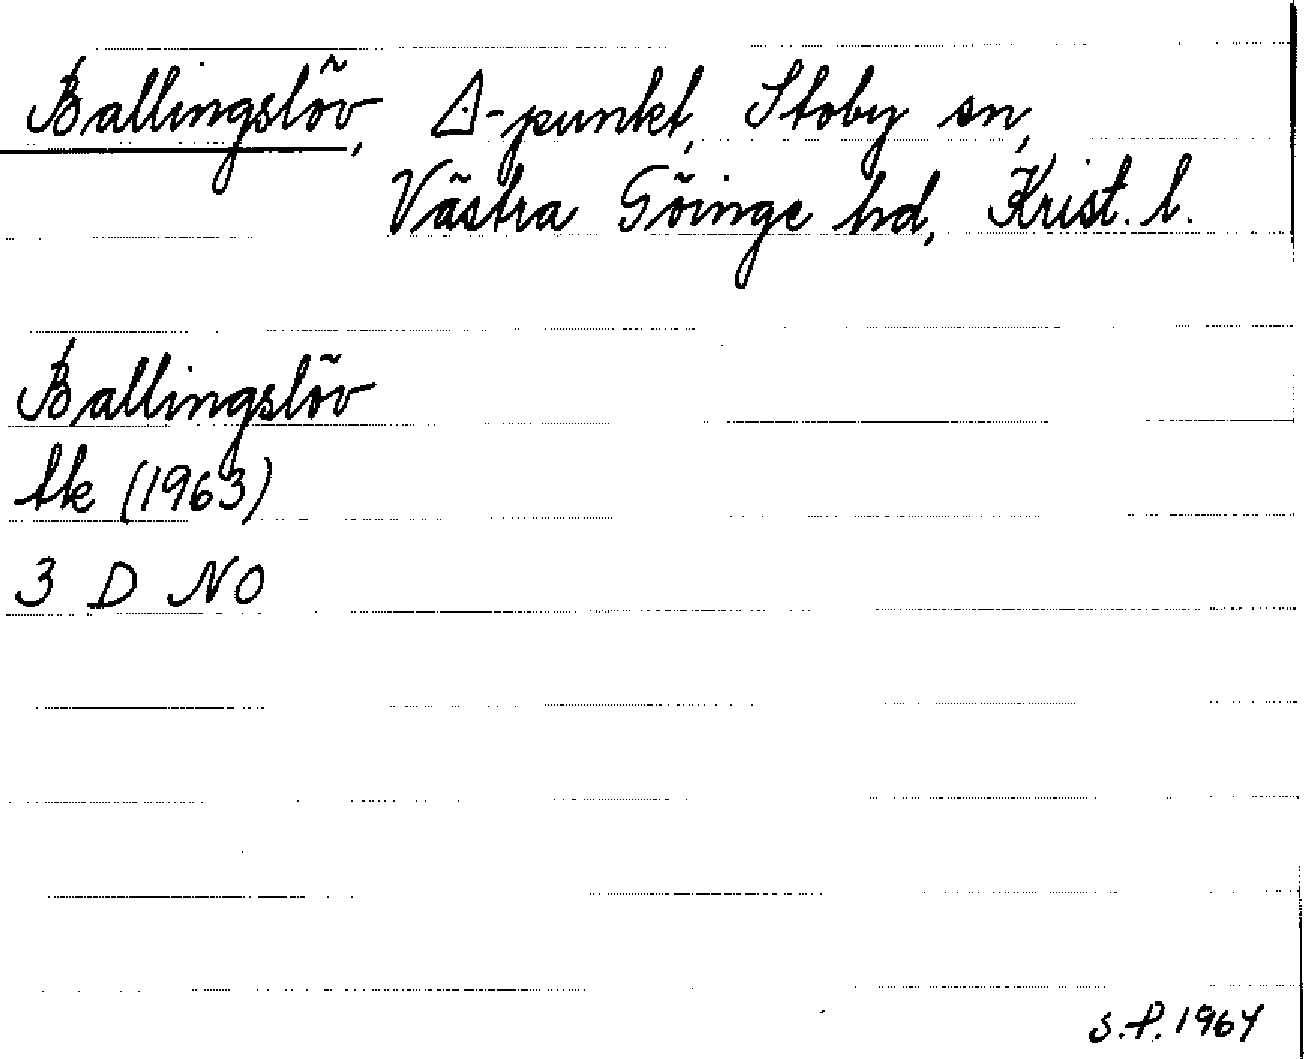 Ballingslöv, ⊿-punkt, Stoby sn,
Västra Göinge hd, Krist. l.
Ballingslöv
tk (1963)
3 D NO
S.P. 1964